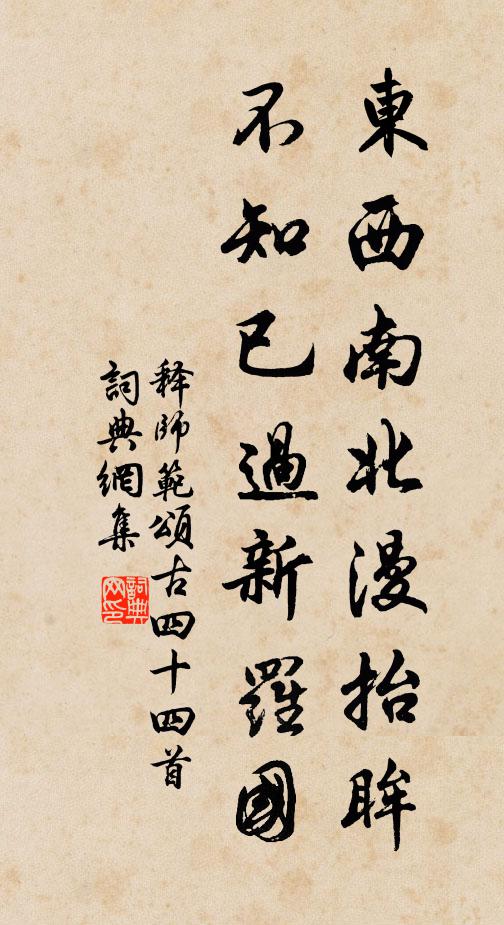 東西南北漫抬眸
不知已過新羅國
釋師範頌古四十四首
詞典網集
詞典
网印